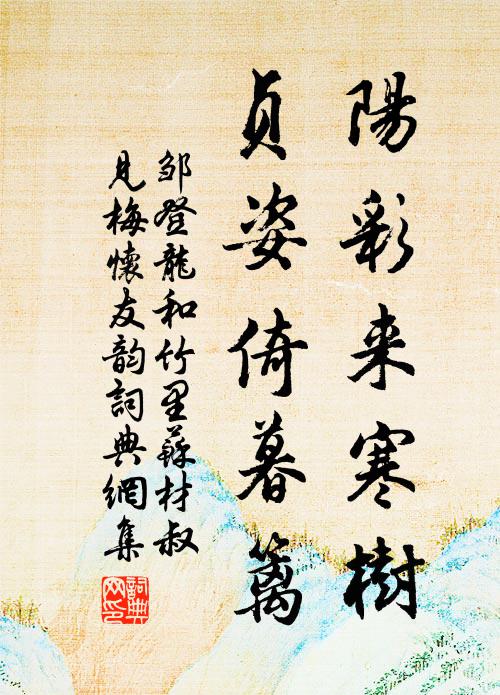 陽彩来寒樹
貞姿倚暮籬
邹登龍和竹里蘇材叔
見梅懷友韵詞典網集
詞典
网印